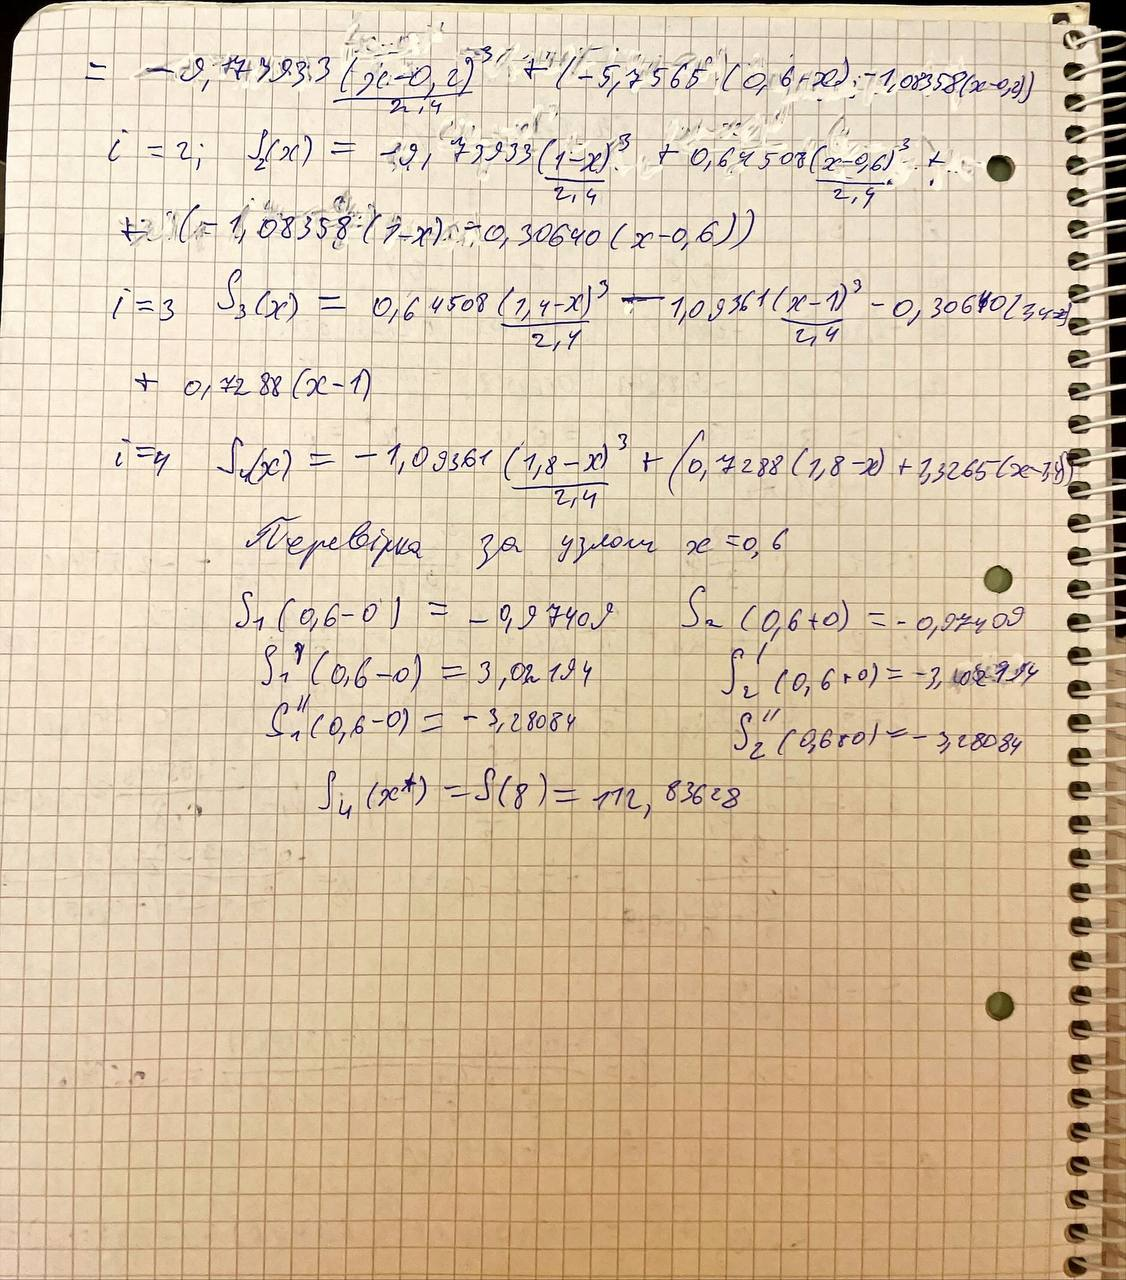 = -9,773933 (x-0,2)^3/2,4 + (-5,7565 (0,6+x) -1,08358(x-0,2))
i = 2; S_2(x) = -9,73933 (1-x)^3/2,4 + 0,64508 (x-0,6)^3/2,4 +
+ (-1,08358 (1-x) - 0,30640 (x-0,6))
i=3 S_3(x) = 0,64508 (1,4-x)^3/2,4 - 1,09361 (x-1)^3/2,4 - 0,30640
+ 0,7288 (x-1)
i=4 S_4(x) = -1,09361 (1,8-x)^3/2,4 + (0,7288 (1,8-x) + 1,3265
Перевірка за узлом x=0,6
S_1 (0,6-0) = -0,97409 S_2 (0,6+0) = -0,97409
S_1' (0,6-0) = 3,02194 S_2' (0,6+0) =
S_1'' (0,6-0) = -3,28084 S_2'' (0,6+0) = -3,28084
S_4 (x*) = S(8) = 112,83628